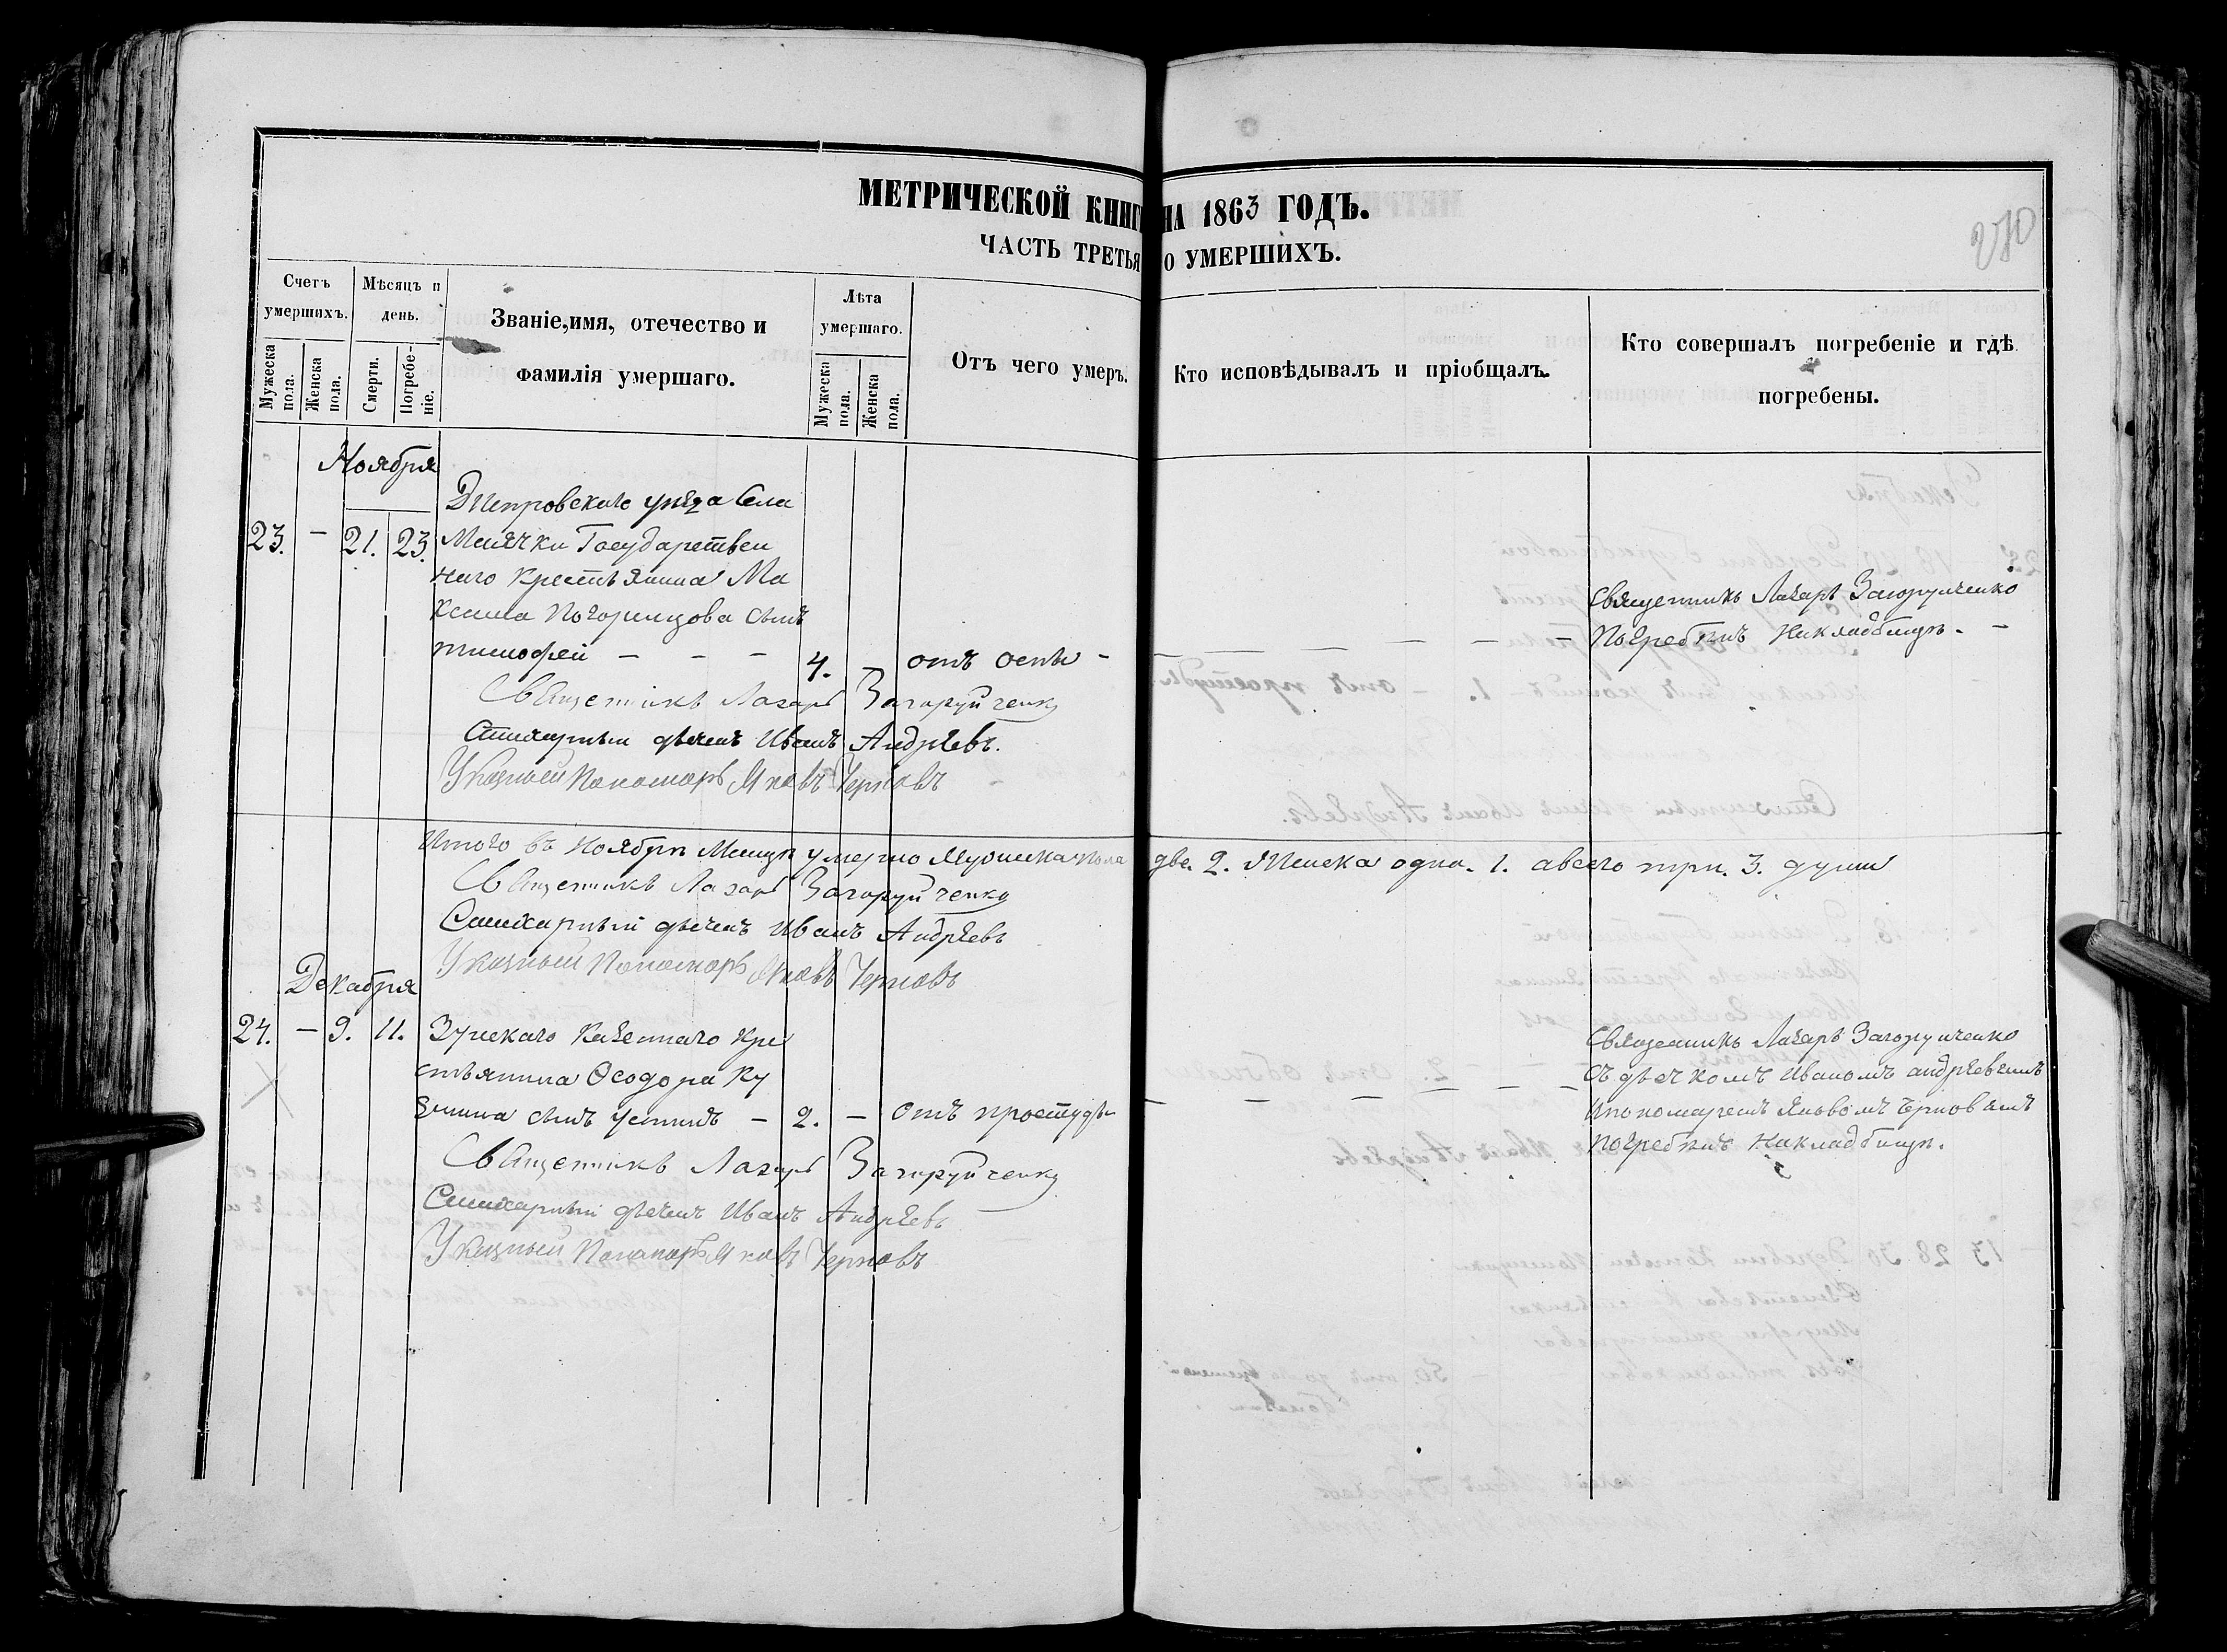 МЕТРИЧЕСКОЙ КНИГ НА 1863 ГОДЪ.
ЧАСТЬ ТРЕТЬЯ О УМЕРШИХЪ.
270
Счетъ умершихъ.
Мужеска пола.
Женска пола.
Мѣсяцъ и день.
Смерти.
Погребеніе.
Званіе, имя, отечество и
фамилія умершаго.
Лѣта умершаго.
Мужеска пола.
Женска пола.
Отъ чего умеръ.
Кто исповѣдывалъ и пріобщалъ.
Кто совершалъ погребеніе и гдѣ
погребены.
Ноября
Днепровскаго уѣзда Села
23. – 21. 23. Маячки Государствен
наго Крестьянина Ма
ксима Погорицова сынъ
тимофей – – – 4. – отъ оспы –
Священникъ Лазарь Загоруйченко
Погребенъ Накладбищѣ. –
Священникъ Лазарь Загоруйченко
Стихарный дьячекъ Иванъ Андрѣевъ.
Указный Пономарь Яковъ Черновъ
Итого въ Ноябрѣ Месицѣ умерло Мужеска пола две. 2. Женска одна. 1. авсего три. 3. души
Священникъ Лазарь Загоруйченко
Стихарный дьячекъ Иванъ Андрѣевъ
Указный Пономарь Яковъ Черновъ
Декабря
24. – 9. 11. Зуйскаго Казеннаго Кре
стьянина Ѳеодора Ку
зьмина сынъ устинъ – 2. – отъ простуды
Священникъ Лазарь Загоруйченко
съ дьячкомъ Иваномъ андрѣевымъ
Ипономаремъ Яковомъ Черновымъ
Погребенъ Накладбищѣ.
Священникъ Лазарь Загоруйченко
Стихарный дьячекъ Иванъ Андрѣевъ
Указный Пономарь Яковъ Черновъ